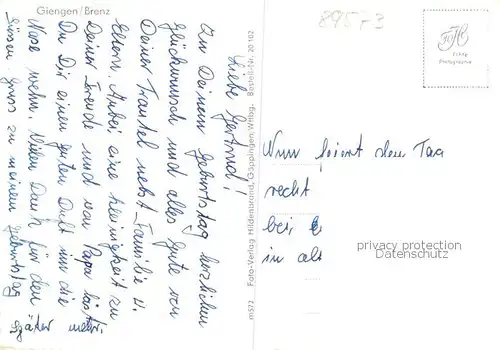 Giengen/Brenz
895 F3
Echte
Photographie
Liebe Gertrud!
Zu Deinem Geburtstag herzlichen
Glückwunsch und alles Gute von
Deiner Traudel nebst Familie u.
Eltern. Anbei eine Kleinigkeit zu
Deiner Freude und von Papa läßt
Du Dir einen guten Duft um die
Nase wehn. Vielen Dank für den
süssen Gruss zu meinem Geburtstag
später mehr.
m572 Foto-Verlag Hildenbrand, Göppingen/Wttbg. Bestell-Nr. 20 102
Nun feiert den Tag
recht
bei
in
privacy protection
Datenschutz